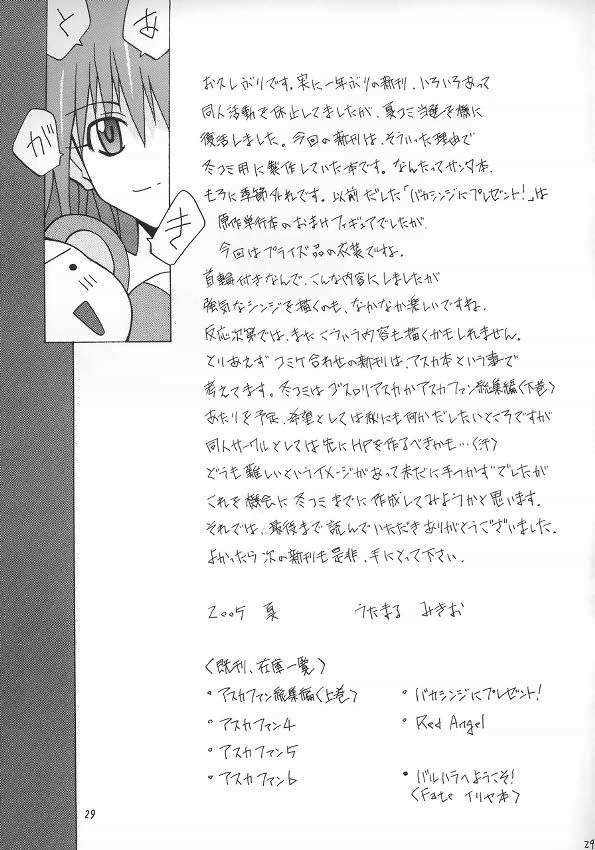 あとがき
お久しぶりです。実に一年ぶりの新刊、いろいろあって
同人活動を休止してましたが、夏コミ当選を機に
復活しました。今回の新刊は、そういった理由で
冬コミ用に製作していた本です。なんたってサンタ本、
もろに季節外れです。以前だした「バカシンジにプレゼント!」は
原作単行本のおまけフィギュアでしたが
今回はプライズ品の衣装ですよ。
首輪付きなんで、こんな内容にしましたが
強気なシンジを描くのも、なかなか楽しいですね。
反応次第では、またこういう内容も描くかもしれません。
とりあえずコミケ合わせの新刊は、アスカ本という事で
考えてます。冬コミはゴスロリアスカかアスカファン総集編〈下巻〉
あたりを予定、希望としては秋にも何かだしたいところですが
同人サークルとしては先にHPを作るべきかも…〈汗〉
どうも難しいというイメージがあって未だに手つかずでしたが
これを機会に冬コミまでに作成してみようかと思います。
それでは、最後まで読んでいただきありがとうございました。
よかったら次の新刊も是非、手にとって下さい。
2005 夏 うたまる みきお
〈既刊、在庫一覧〉
・アスカファン総集編〈上巻〉
・アスカファン4
・アスカファン5
・アスカファン6
・バカシンジにプレゼント!
・Red Angel
・バルハラへようこそ!
〈Fate イリヤ本〉
29
29